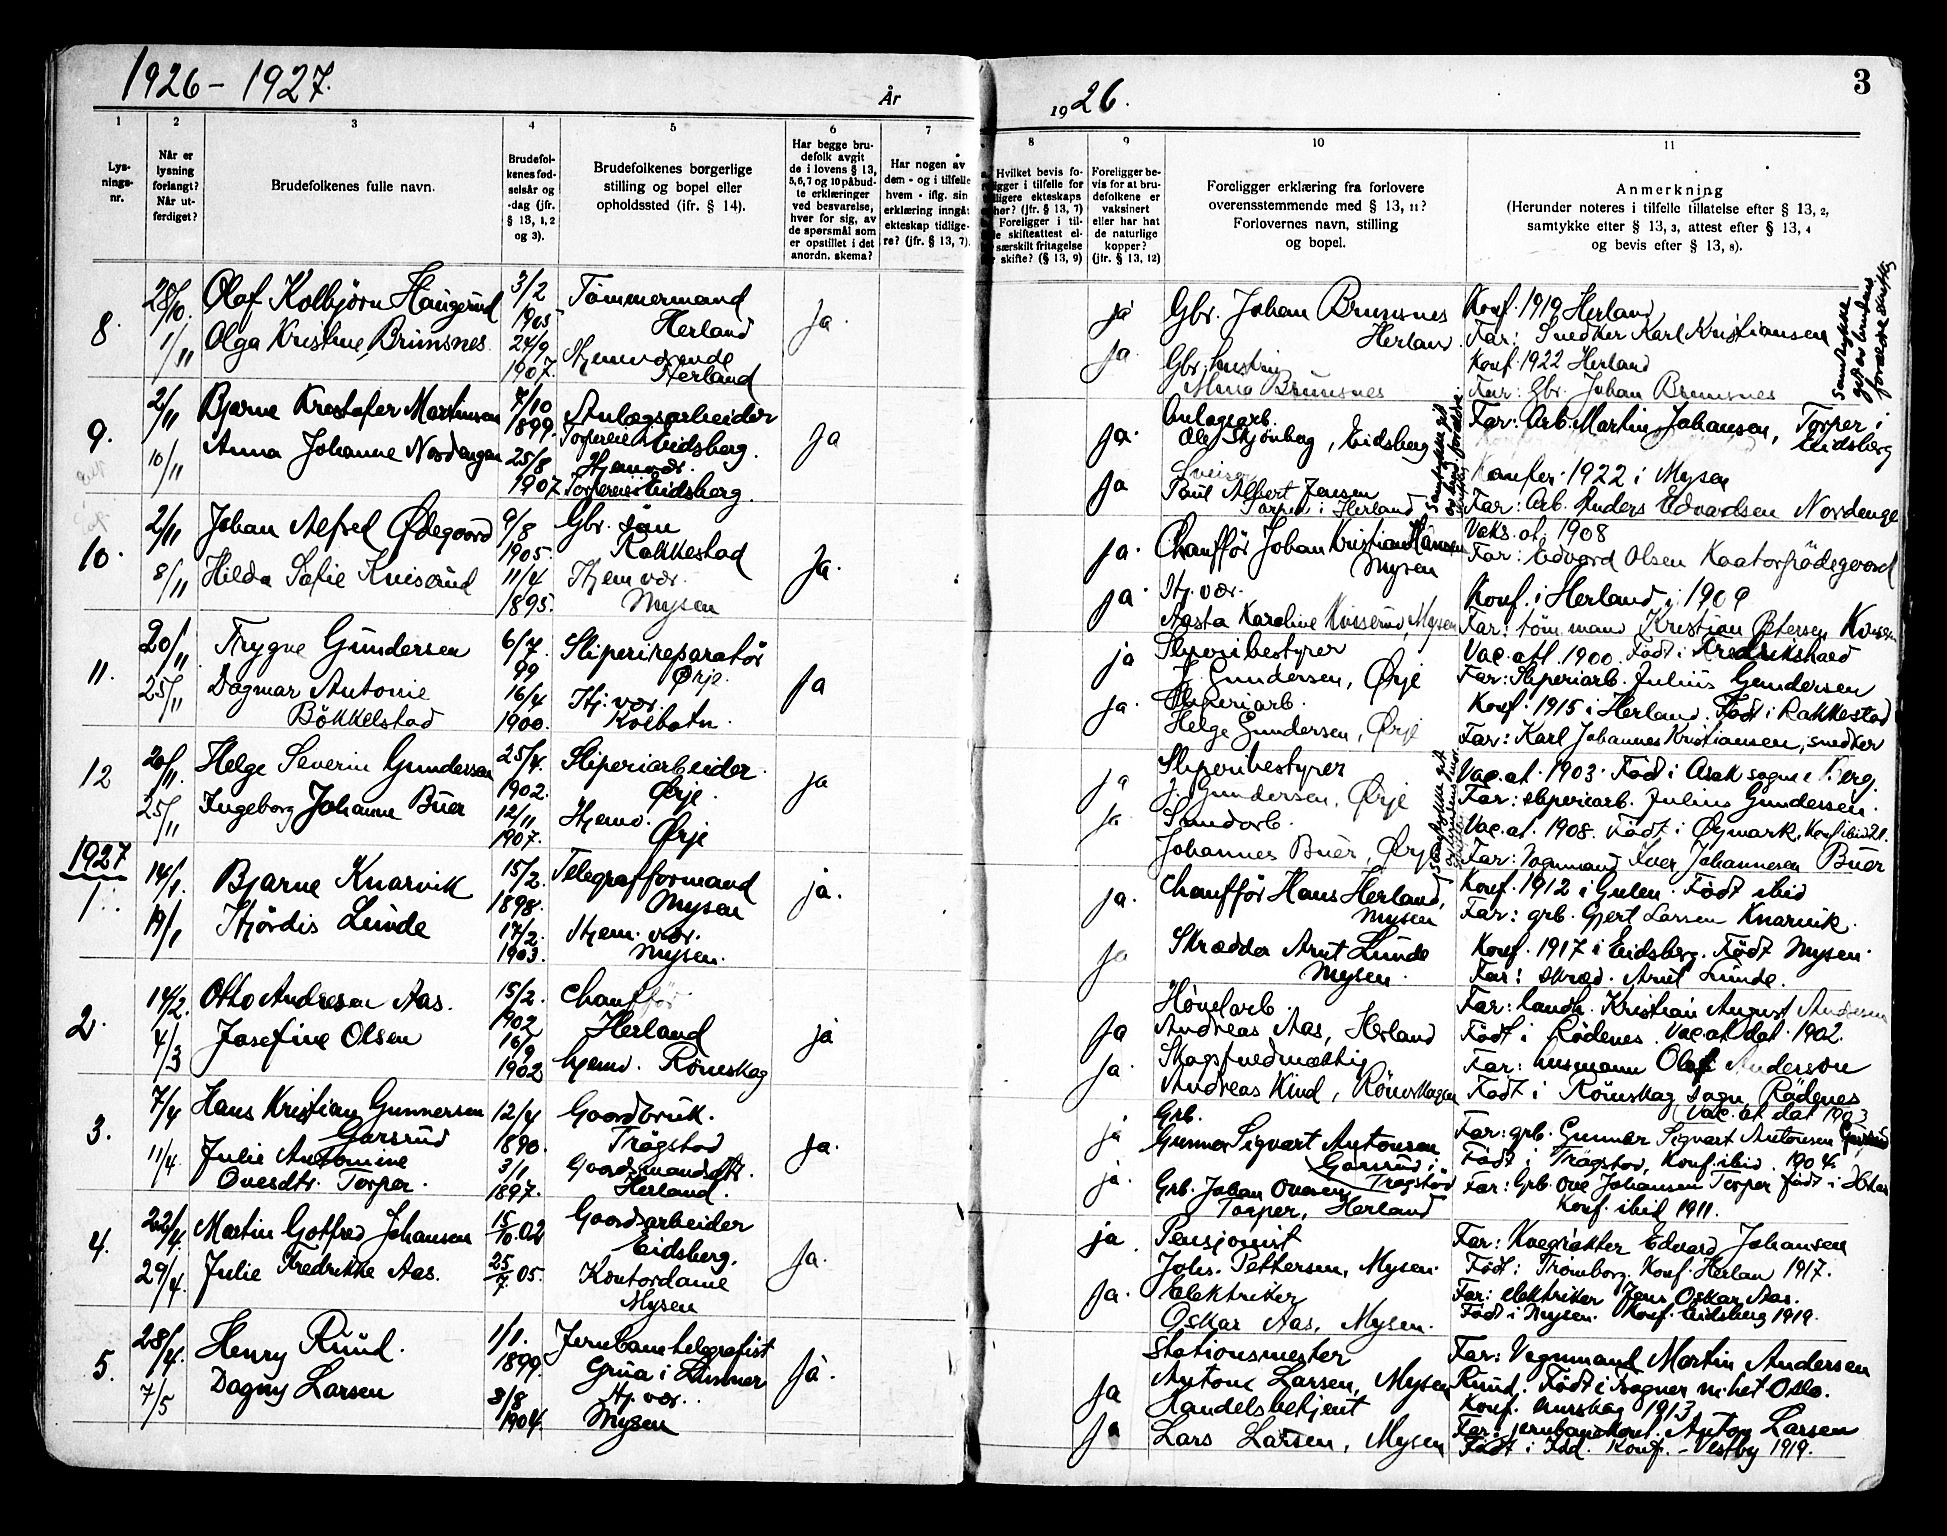 1926 - 1927.
År
1926.
3
1
2
3
4
5
6
7
8
9
10
11
Lys-
nings-
nr.
Når er
lysning
forlangt?
Når ut-
ferdiget?
Brudefolkenes fulle navn.
Brudefol-
kenes fød-
selsår og
-dag (jfr.
§ 13, 1, 2
og 3).
Brudefolkenes borgerlige
stilling og bopel eller
opholdssted (ifr. § 14).
Har begge bru-
defolk avgit
de i lovens § 13,
5, 6, 7 og 10 påbud-
te erklæringer
ved besvarelse,
hver for sig, av
de spørsmål som
er opstillet i det
anordn. skema?
Har nogen av
dem - og i tilfelle
hvem - iflg. sin
erklæring inngått
ekteskap tidlige-
re? (jfr. § 13, 7).
Hvilket bevis fo-
ligger i tilfelle for
tidligere ekteskaps
her? (jfr. § 13, 7)
Foreligger i til-
le skifteattest el-
særskilt fritagelse
skifte? (§ 13, 9)
Foreligger be-
vis for at bru-
defolkene er
vaksinert
eller har hat
de naturlige
kopper?
(jfr. § 13, 12)
Foreligger erklæring fra forlovere
overensstemmende med § 13, 11?
Forlovernes navn, stilling
og bopel.
Anmerkning
(Herunder noteres i tilfelle tillatelse efter § 13, 2,
samtykke efter § 13, 3, attest efter § 13, 4
og bevis efter § 13, 8).
8.
28/10
1/11
Olaf Kolbjørn Haugerud
Olga Kristine Brunsnes
3/2
1905
24/9
1907.
Tømmermand
Herland
Hjemmværende
Herland
ja.
ja
ja.
Gbr. Johan Brunsnes
Herland.
Gbr. hustru
Mina Brunsnes
Konf. 1919 Herland
Far: Snedker Karl Kristiansen
Konf. 1922 Herland
Far: Gbr. Johan Brunsnes
9.
2/11
10/11
Bjarne Krestofer Martinsen
Anna Johanne Nordengen
7/10
1899.
25/8
1907
Anlægsarbeider
Torpereie Eidsberg.
Hjemvær.
Torpereie Eidsberg.
ja
ja.
ja
Anlagsarb.
Ole Skjønhaug, Eidsberg
Sveiser
Paul Albert Jensen
Torper i Herland
Far: Arb. Martin Johansen, Torper i
Eidsberg
Konfir. 1922 i Mysen
Far: Arb. Anders Edvardsen Nordenge
10.
2/11
8/11
Johan Alfred Ødegaard
Hilda Sofie Kniserud
9/8
1905.
11/4
1895.
Gbr. søn
Rakkestad
Hjemvær.
Mysen
Ja.
ja.
ja.
Chauffør Johan Kristian Hansen
Mysen
Hj. vær.
Aasta Karoline Kniserud, Mysen
Vaks. at. 1908
Far: Edvard Olsen Kaatorpødegaard
Konf. i Herland i 1909
Far: tømmand Kristian Petersen
11.
20/11
25/11
Trygve Gundersen
Dagmar Antonie
Bøkkelstad
6/7
99
16/4
1900.
Sliperireparatør
Ørje.
Hj. vær.
Kolbotn.
ja
ja
ja.
Sliperibestyrer
J. Gundersen, Ørje
Sliperiarb.
Helge Gundersen, Ørje
Vac. att. 1900. Født i Fredrikstad
Far: Sliperiarb. Julius Gundersen
Konf. 1915 i Herland. Født i Rakkestad
Far: Karl Johannes Kristiansen, snedker
12
20/11
25/11
Helge Severin Gundersen
Ingeborg Johanne Buer
25/4.
1902.
12/11
1907.
Sliperiarbeider.
Ørje.
Hjemv.
Ørje
ja
ja
ja.
Sliperibestyrer
J. Gundersen, Ørje
Smedarb.
Johannes Buer, Ørje
Vac. at. 1903. Født i Asak sogn i Berg.
Far: sliperiarb. Julius Gundersen.
Vac. at. 1908. Født i Øymark, Konf ibid 21.
Far: Vognmand Iver Johannesen Buer
1927
1.
14/1.
19/1
Bjarne Knarvik
Hjørdis Lunde
15/2.
1898.
17/2.
1903.
Telegrafformand
Mysen
Hjem. vær.
Mysen.
ja.
ja.
ja
Chauffør Hans Herland,
Mysen
Skrædder Arnt Lunde
Mysen.
Konf. 1912 i Gulen. Født ibid
Far: grb. Gjert Larsen Knarvik.
Konf. 1917 i Eidsberg. Født Mysen.
Far: skræd. Arnt Lunde.
2.
14/2.
4/3
Otto Andresen Aas.
Josefine Olsen
15/2.
1902
16/9
1902
Chauffør
Herland
hjemv. Rømskog
ja
ja
ja.
Andreas Aas, Herland
Skogsfuldmektig
Andreas Kind, Rømskogen
Far: landh. Kristian August Andresen
Født i Rødenes. Vac. at dat. 1902.
Far: husmann Olaf Anderson
Født i Rømskog Sogn, Rødenes
Vac. at dat 1903
3.
7/4
11/4.
Hans Kristian Gunnersen
Garsrud
Julie Antonine
Ovesdtr. Torper.
12/4
1890.
3/1.
1897.
Gaardbruk.
Trøgstad
Gaardmandsdtr.
Herland.
ja.
ja
ja.
Grb.
Gunnar Sigvart Antonsen
Garsrud i
Trøgstad
Grb. Johan Ovesen
Torper, Herland
Far: grb. Gunnar Sigvart Antonsen Garsrud
Født i Trøgstad, Konf. ibid. 1904.
Far: Grb. Ove Johansen Torper født i
Konf. ibid 1911.
4.
22/4.
29/4.
Martin Gotfred Johansen
Julie Fredrikke Aas.
15/10.02
25/7.05.
Gaardsarbeider
Eidsberg.
Kontordame
Mysen
ja.
ja
ja.
Pensjonist
Johs. Pettersen, Mysen.
Elektriker
Oskar Aas, Mysen.
Far: Kvegrøkter Edvard Johansen
Født: Trømborg. Konf. Herlan 1917.
Far: elektriker Jens Oskar Aas.
Født i Mysen. Konf. Eidsberg 1919.
5.
28/4.
7/5
Henry Ruud.
Dagny Larsen
1/1.
1899.
3/8
1904.
Jernbanetelegrafist
Grua i Lunner
Hj. vær.
Mysen
ja.
ja
ja
Stationsmester
Antone Larsen, Mysen
Handelsbetjent
Lars Larsen, Mysen
Far: Vognmand Martin Andersen
Ruud. Født i Frogner m.het Oslo.
Konf. 1913
Far: jernbanekont. Anton Larsen
Født i Idd. Konf. - Vestby 1919.